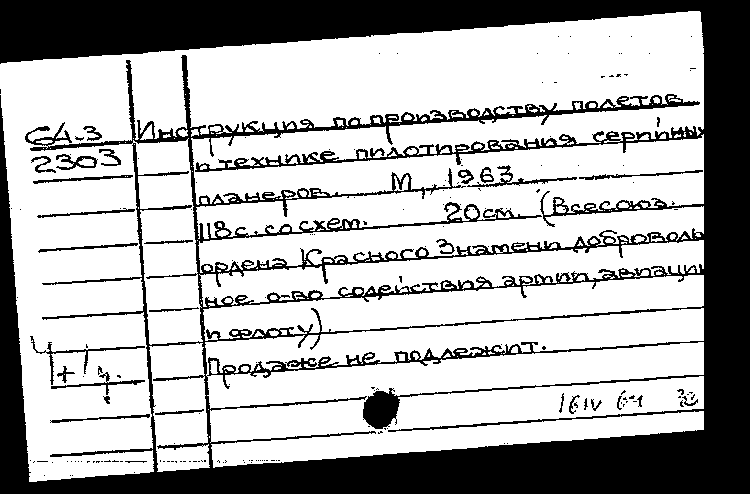 64.3 Инструкция по производству полетов
2303 и технике пилотирования серийных
планеров. М., 1963.
118с. со схем. 20см. (Всесоюз.
ордена Красного Знамени доброволь
ное о-во содействия армии, авиации
и флоту).
Продаже не подлежит.
4+1ч.
16IV 64